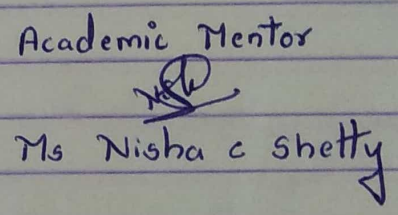 Academic Mentor
Ms Nisha c Shetty